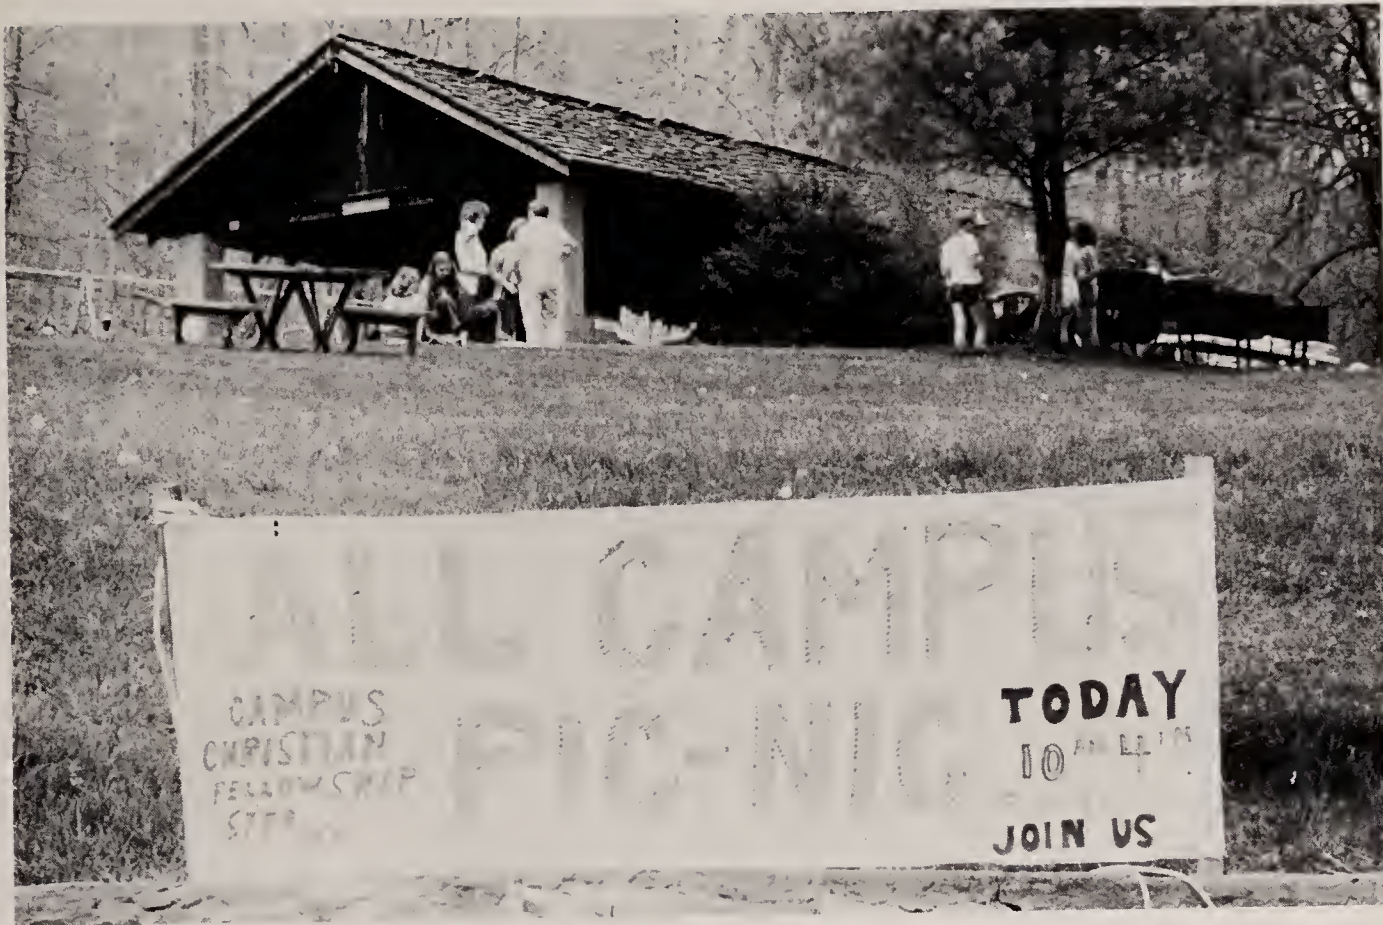 ALL CAMPUS
PIC-NIC
CAMPUS
CHRISTIAN
FELLOWSHIP
TODAY
10
JOIN US